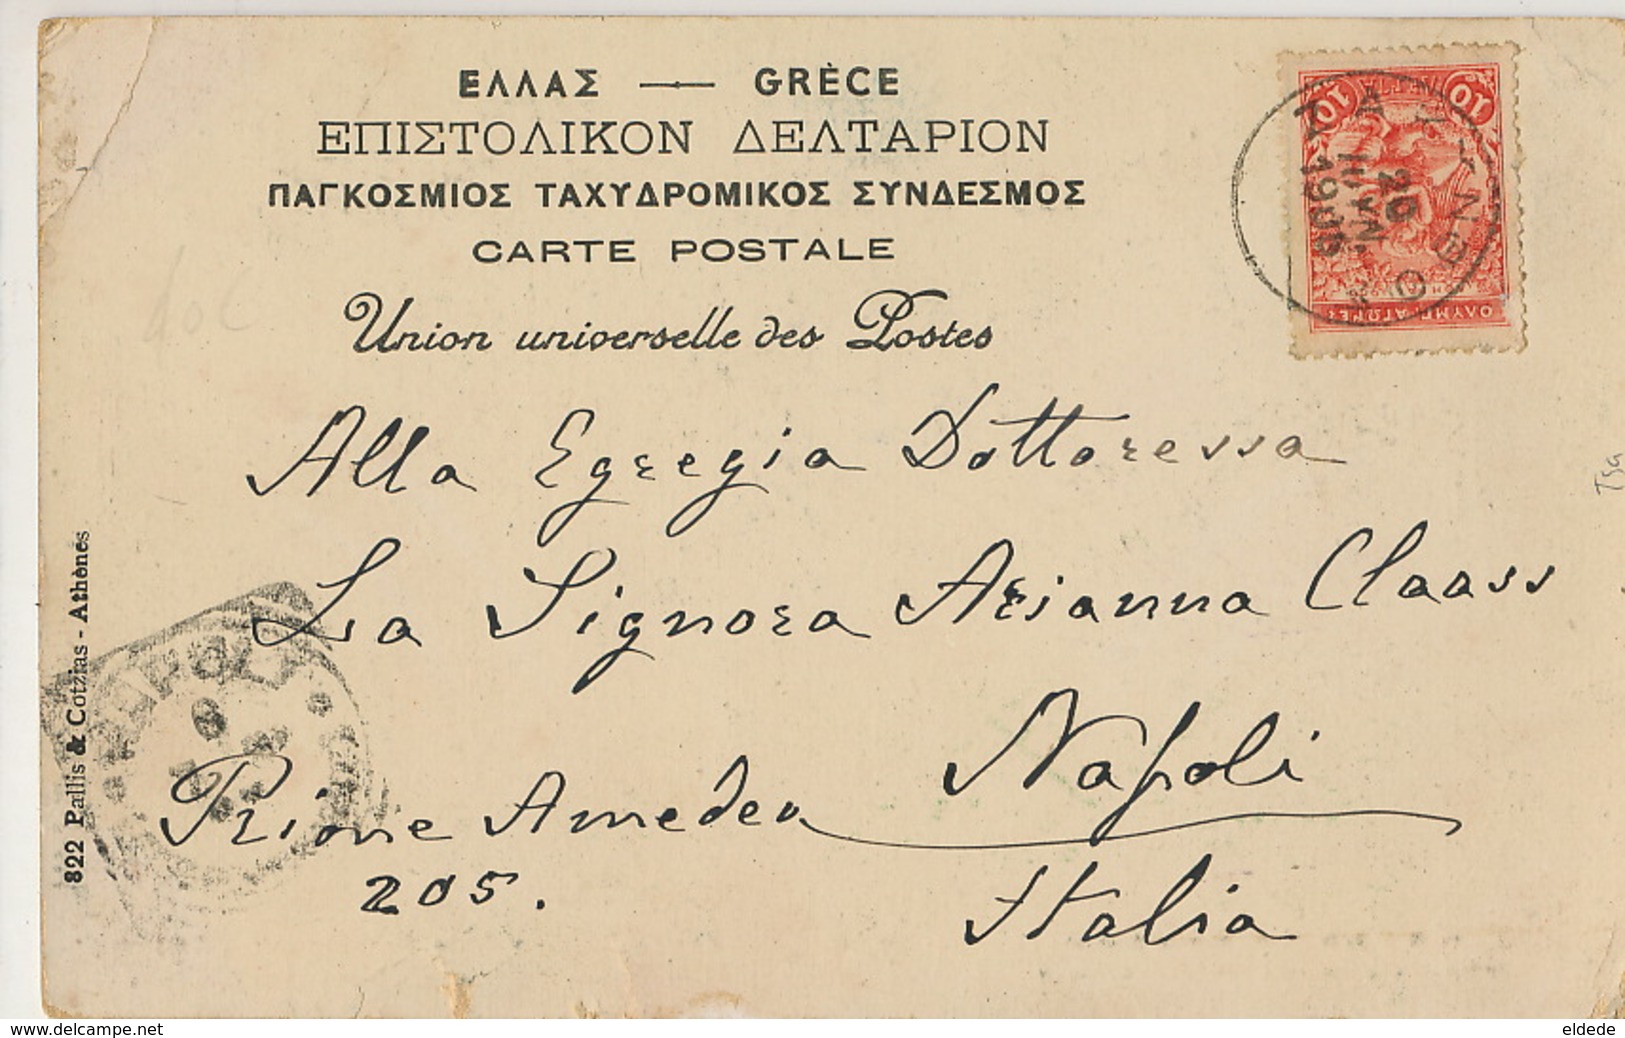 ΕΛΛΑΣ — GRÈCE
ΕΠΙΣΤΟΛΙΚΟΝ ΔΕΛΤΑΡΙΟΝ
ΠΑΓΚΟΣΜΙΟΣ ΤΑΧΥΔΡΟΜΙΚΟΣ ΣΥΝΔΕΣΜΟΣ
CARTE POSTALE
Union universelle des Postes
10 10
ΟΛΥΜΠ. ΑΓΩΝΕΣ
20
1906
doc
Alla Egregia Dottoressa
La Signora Arianna Claass
Napoli
Prione Amedeo
205.
Italia
822 Pallis & Cotzias - Athènes
www.delcampe.net
eldede